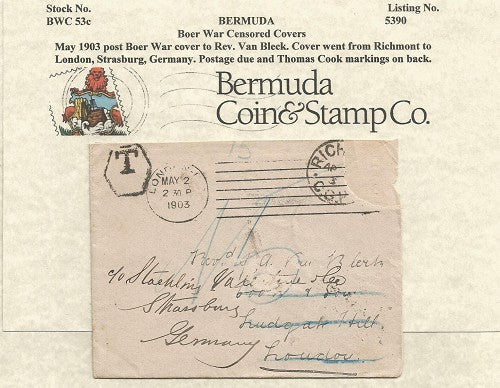 Stock No. BERMUDA Listing No.
BWC 53c Boer War Censored Covers 5390
May 1903 post Boer War cover to Rev. Van Bleck. Cover went from Richmont to
London, Strasburg, Germany. Postage due and Thomas Cook markings on back.
Bermuda
Coin&Stamp Co.
15
T
LONDON
MAY 2
2 30 P
1903
RICH
AP
3
c/o
Strassburg
Germany
Ludgate Hill
London